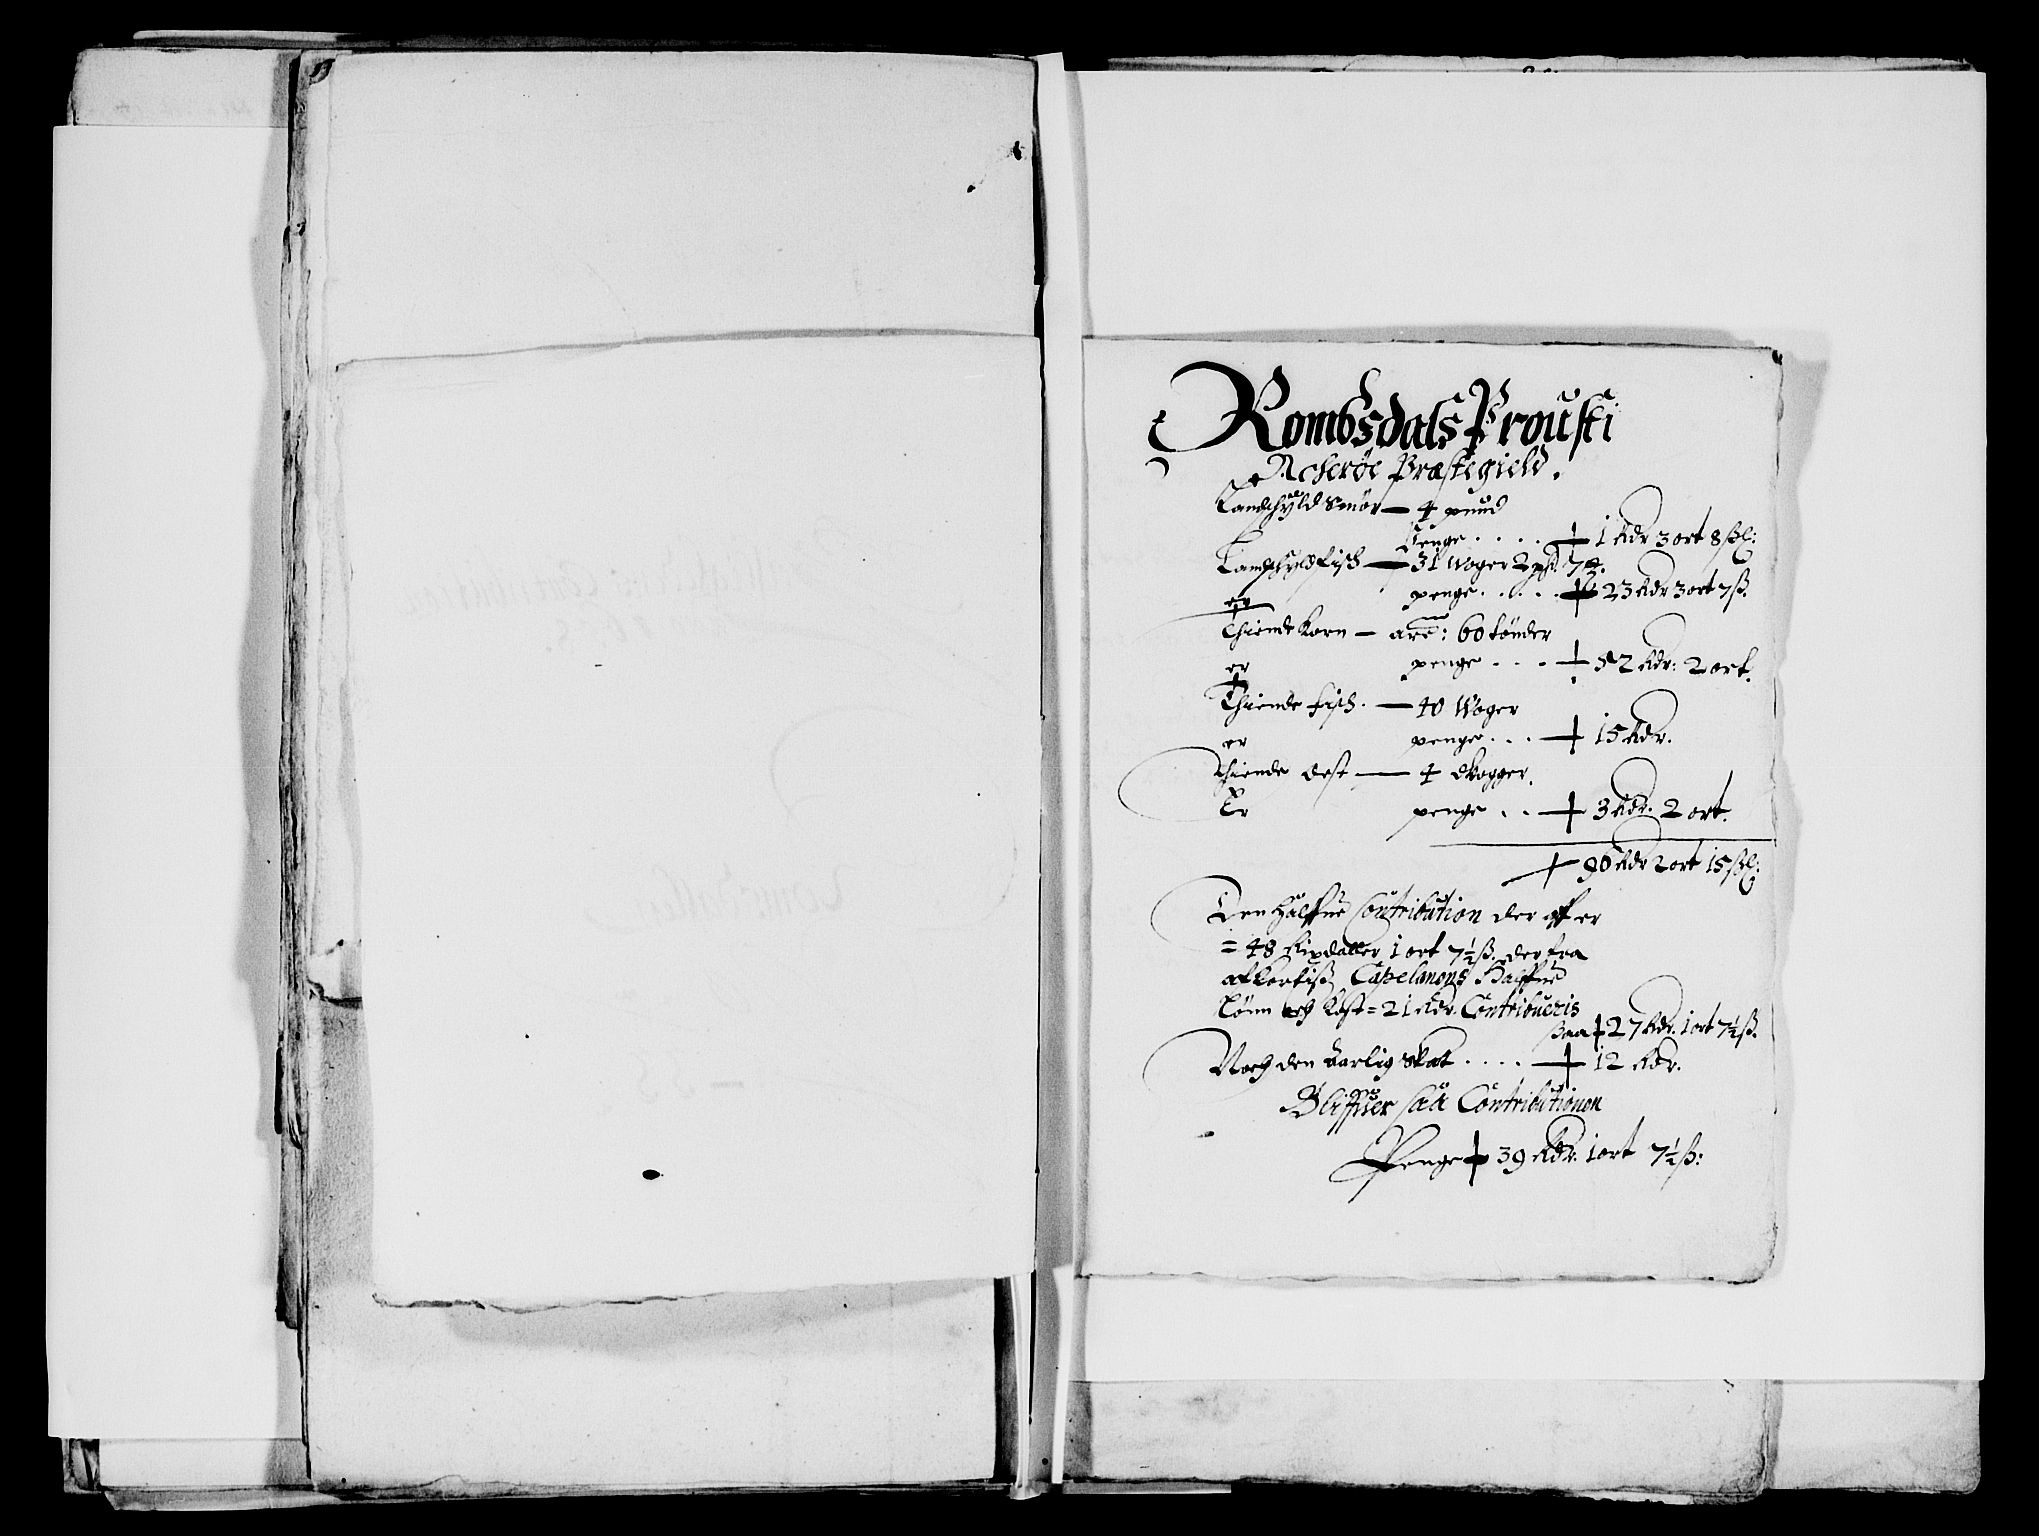 Rombsdals Prousti
Acherøe Præstegield.
Landschyld Smør — 4 pund
Penge . . . . 1 Rdr 3 ort 8 ßl:
Landschyld fisch — 31 Woger 2 pd. 7
er penge . . . . 23 Rdr 3 ort 7 ß.
Thiende Korn — are: 60 tønder
er penge . . . 52 Rdr: 2 ort.
Thiende fisch. — 40 Woger
er penge . . . 15 Rdr.
Thiende Ost — 4 Woger.
Er penge . . 3 Rdr. 2 ort.
96 Rdr 2 ort 15 ßl:
Den Halffue Contribution der aff er
= 48 Rixdaller 1 ort 7½ ß. der fra
afkortiß Capelanens Halffue
Lønn och Kost = 21 Rdr. Contribueris
saa 27 Rdr. 1 ort 7½ ß.
Noch den aarlig Skat . . . . 12 Rdr.
Bliffuer saa Contributionen
Penge 39 Rdr. 1 ort 7½ ß: